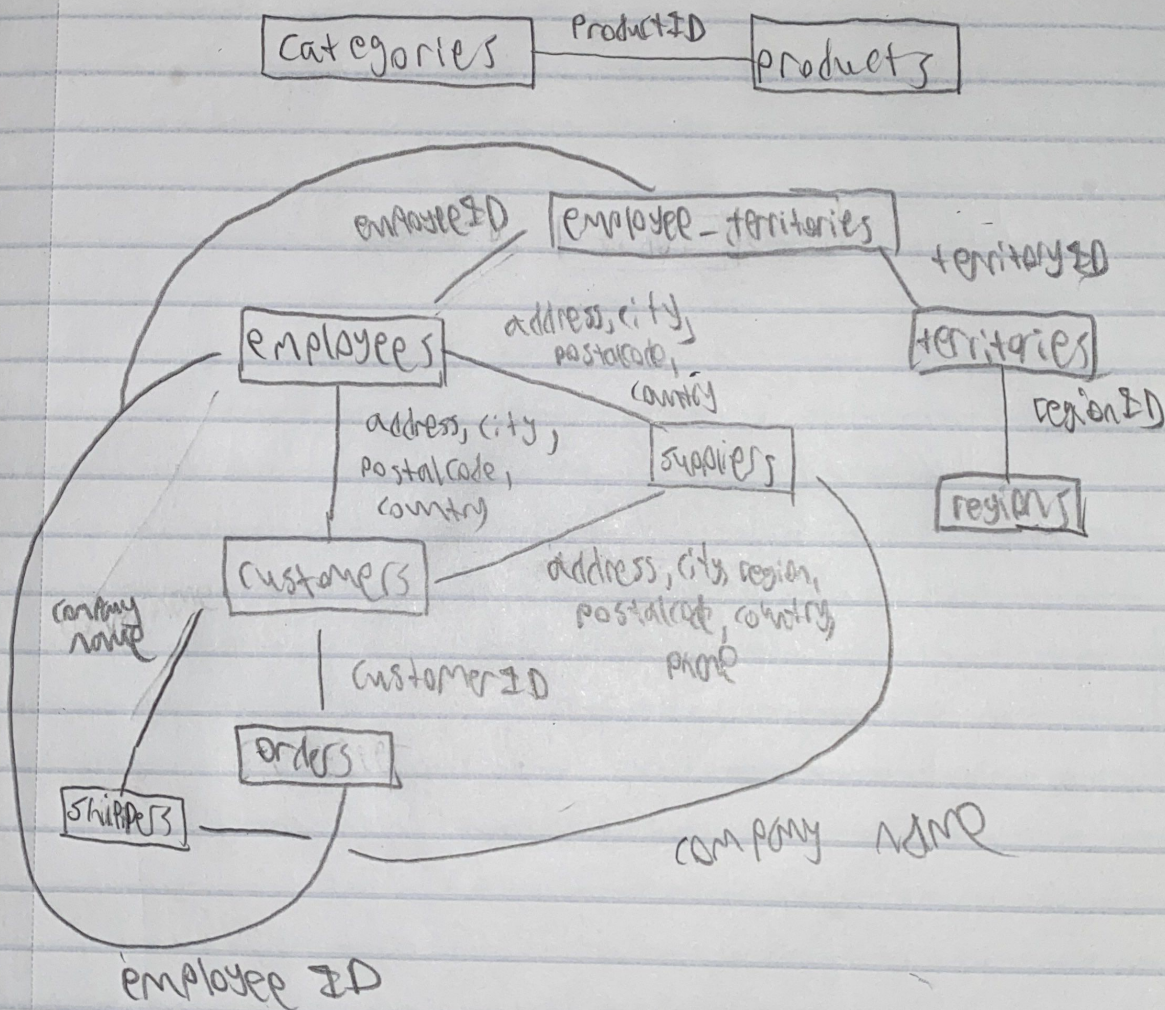 categories
ProductID
products
employeeID
employee_territories
territoryID
employees
address, city,
postalcode,
country
territories
regionID
address, city,
postalcode,
country
suppliers
regions
customers
address, city, region,
postalcode, country,
phone
company
name
customerID
orders
shippers
company name
employee ID